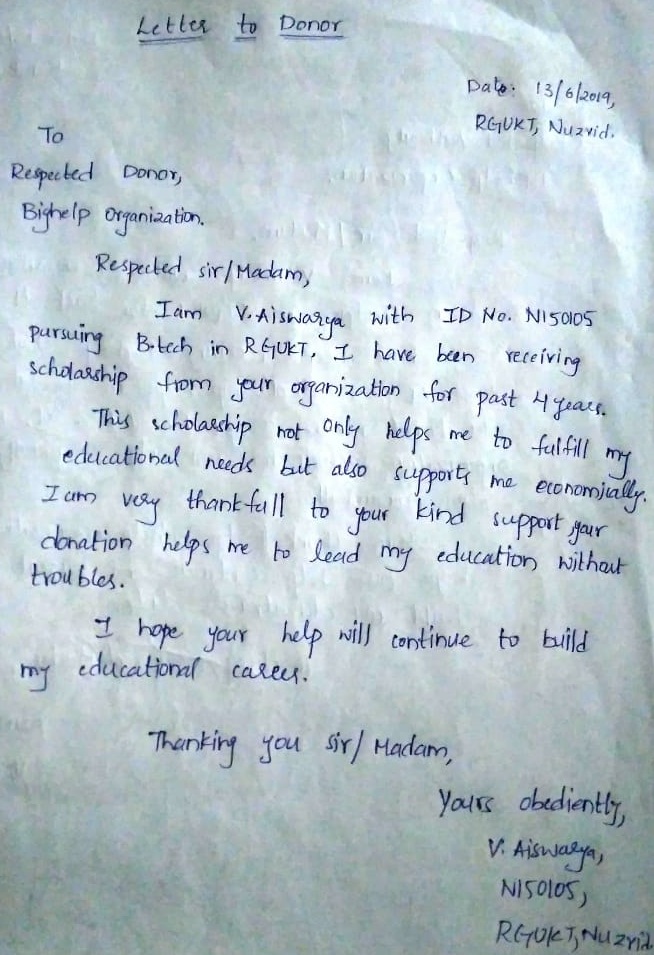 Letter to Donor
Date: 13/6/2019,
RGUKT, Nuzvid.
To
Respected Donor,
Bighelp Organization.
Respected sir/Madam,
I am V. Aiswarya with ID No. N150105
pursuing B.tech in RGUKT. I have been receiving
scholarship from your organization for past 4 years.
This scholarship not only helps me to fulfill my
educational needs but also supports me economially.
I am very thankfull to your kind support your
donation helps me to lead my education without
troubles.
I hope your help will continue to build
my educational career.
Thanking you sir/ Madam,
Yours obediently,
V. Aiswarya,
N150105,
RGUKT, Nuzvid.